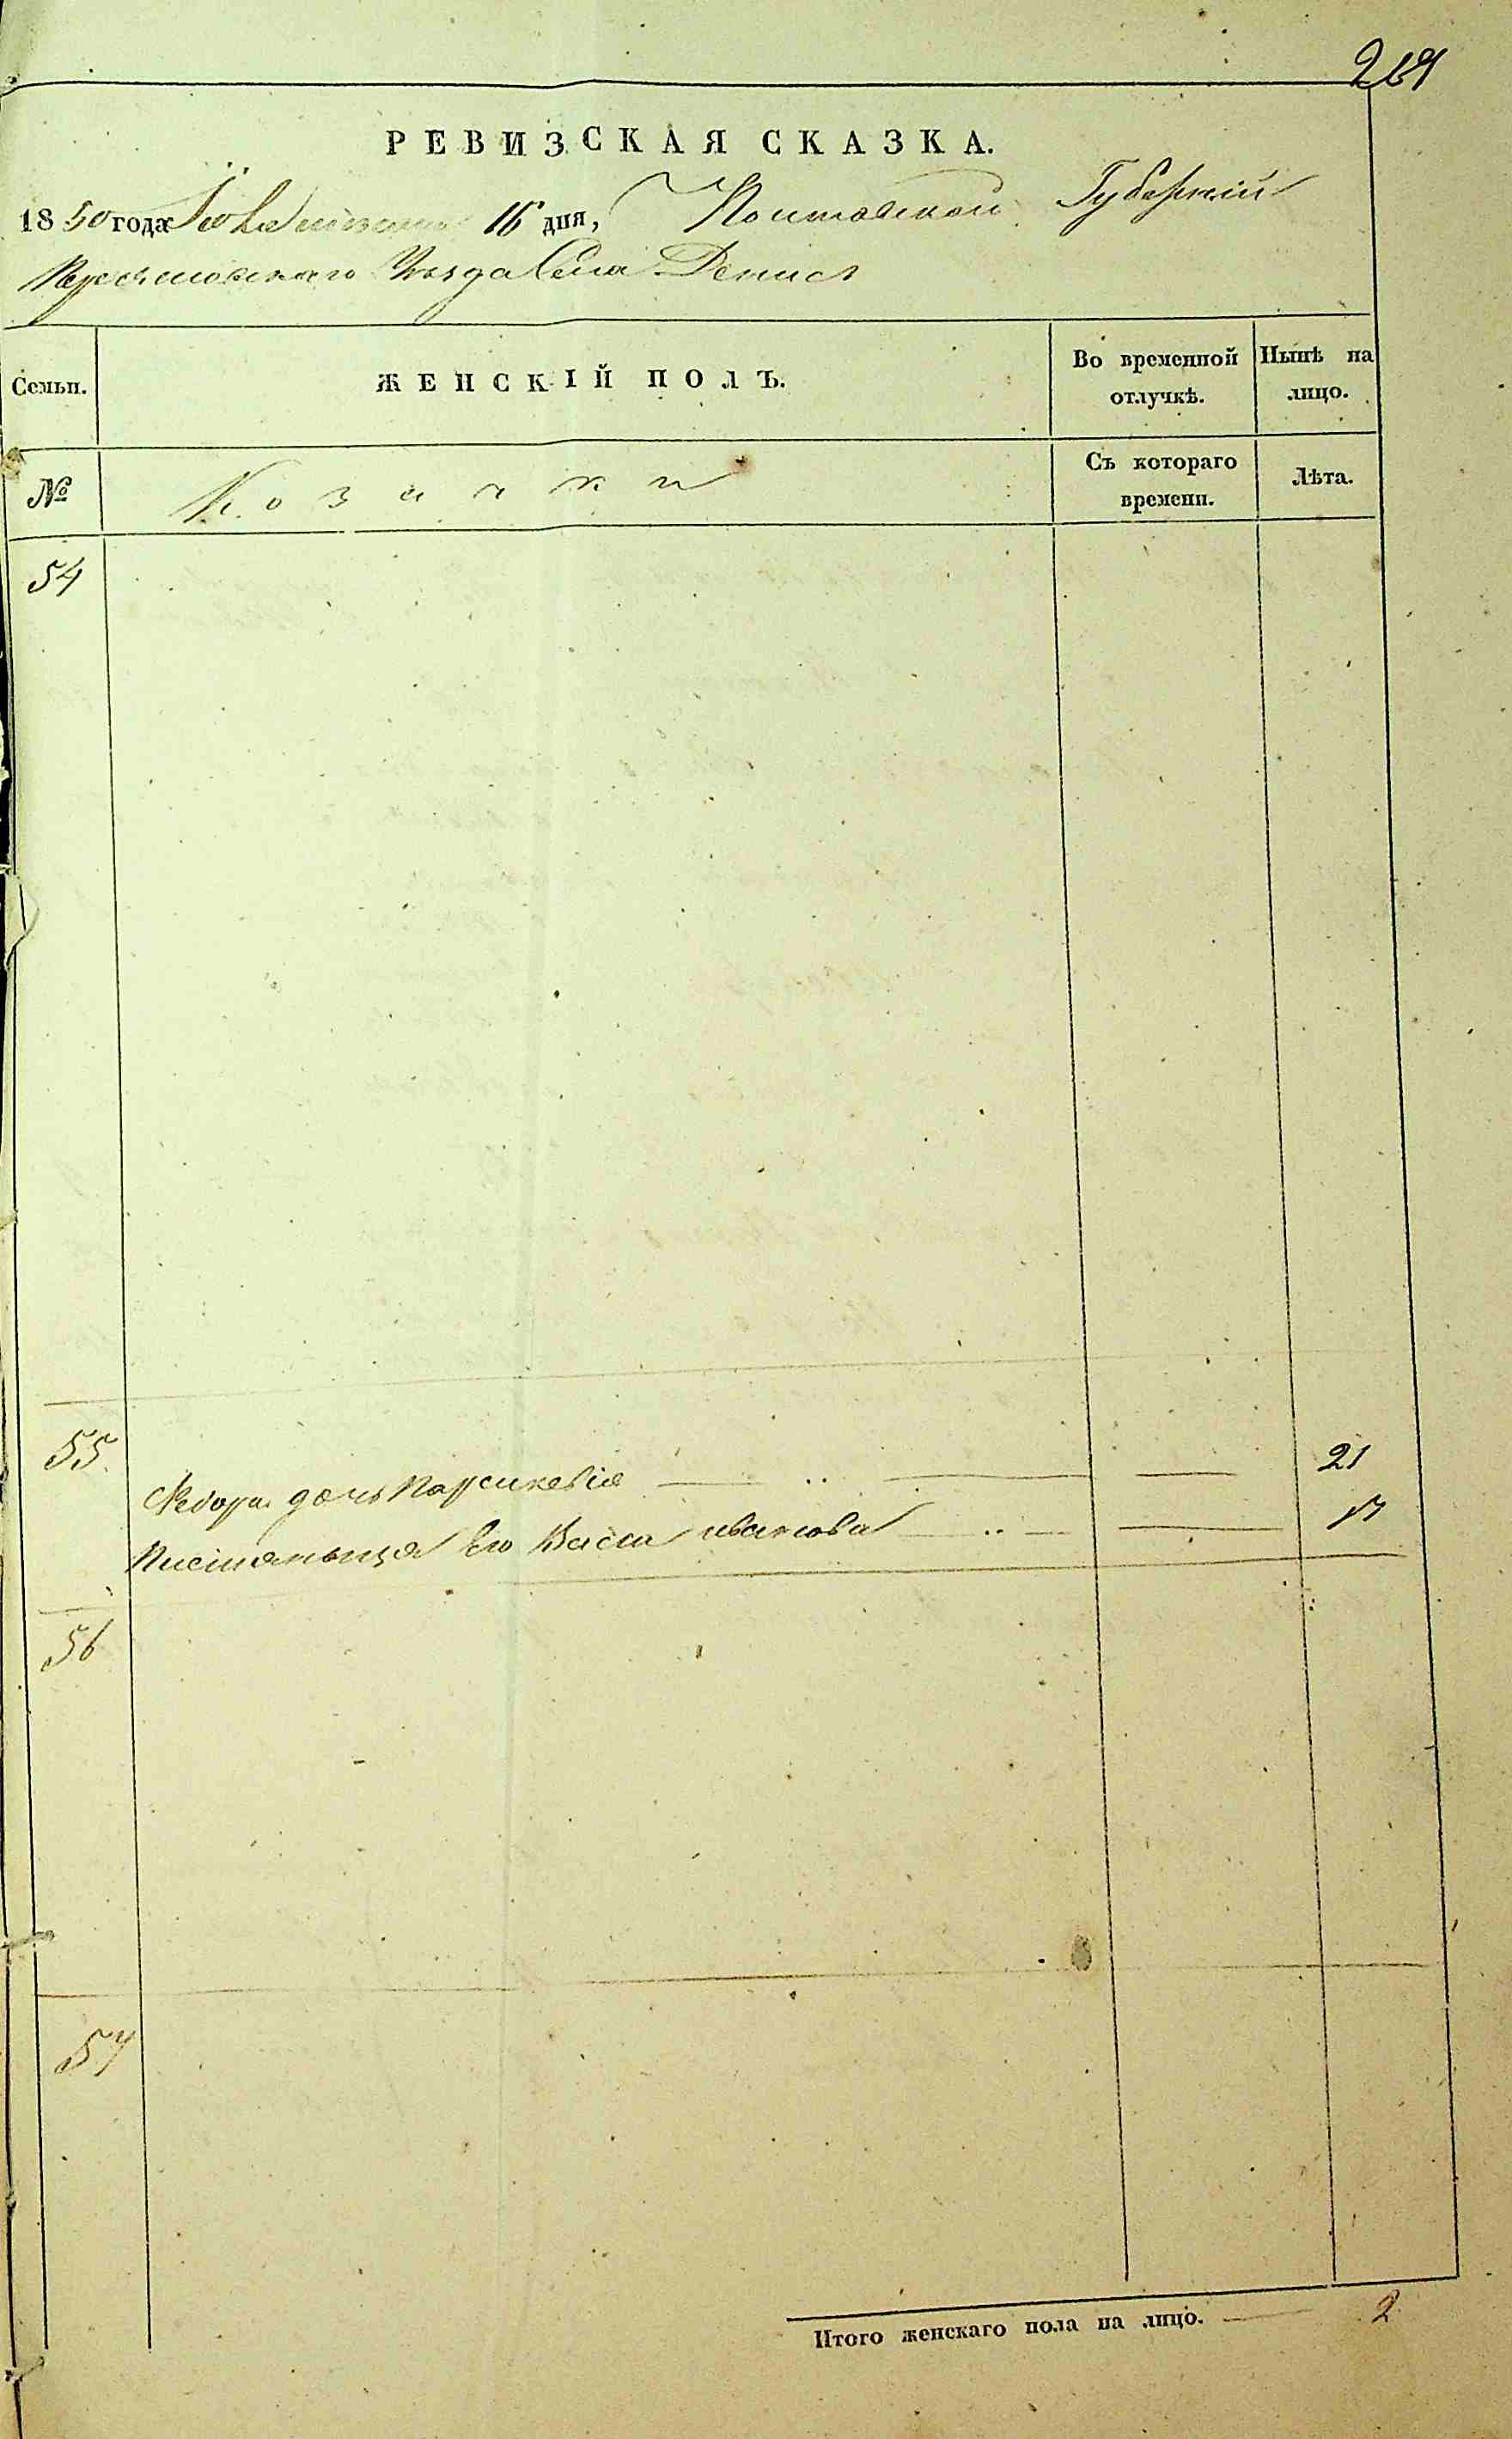 269
РЕВИЗСКАЯ СКАЗКА.
1850 года 16 дня, Полтавской Губерніи
Переяславскаго Уезда Села Денисъ
Семьи.
ЖЕНСКІЙ ПОЛЪ.
Во временной отлучкѣ.
Нынѣ на лицо.
№
Козачки
Съ котораго времени.
Лѣта.
54
55.
Федора дочь Параскевія 21
Его Васса иванова 17
56
57
Итого женскаго пола на лицо. 2